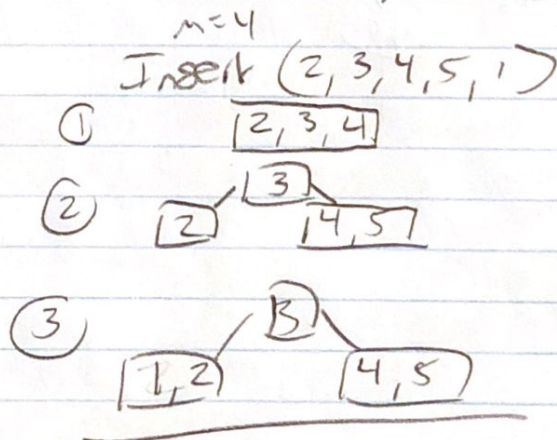 m=4
Insert (2, 3, 4, 5, 1)
① 2, 3, 4
② 3
2 4, 5
③ 3
1, 2 4, 5